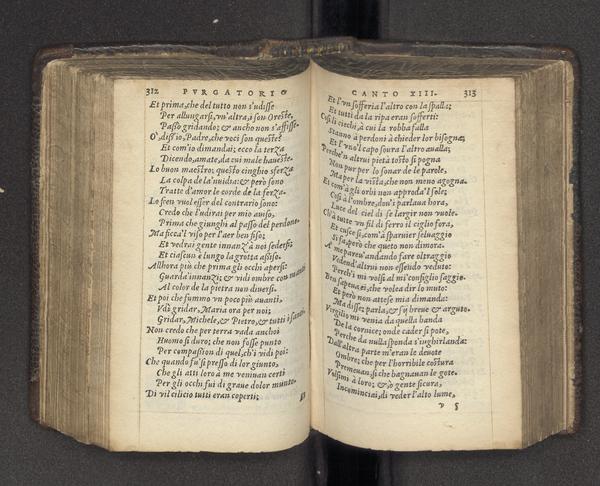 312 PVRGATORIO
Et prima, che del tutto non s'udisse
Per allungarsi, vn'altra, i son Oreste,
Passò gridando; & ancho non s'affisse.
O, diss'io, Padre, che voci son queste?
Et com'io dimandai; ecco la terza
Dicendo, amate, da cui male haueste.
Lo buon maestro; questo cinghio sferza
La colpa de la'nuidia; & però sono
Tratte d'amor le corde de la ferza.
Lo fren vuol esser del contrario sono:
Credo che l'udirai per mio auiso,
Prima che giunghi al passo del perdono.
Ma ficca'l viso per l'aer ben fiso;
Et vedrai gente innanz'a noi sedersi;
Et ciascun è lungo la grotta assiso.
Allhora più che prima gli occhi apersi:
Guarda'innanzi; & vidi ombre con manti
Al color de la pietra non diuersi.
Et poi che fummo vn poco più auanti,
Vdi gridar, Maria ora per noi;
Gridar, Michele, & Pietro, & tutti i santi.
Non credo che per terra vada anchoi
Huomo sì duro; che non fosse punto
Per compassion di quel, ch'i vidi poi:
Che quando fu sì presso di lor giunto,
Che gli atti loro a me veniuan certi
Per gli occhi fui di graue dolor munto.
Di vil cilicio tutti eran coperti;
Et
CANTO XIII. 313
Et l'vn sofferia l'altro con la spalla;
Et tutti da la ripa eran sofferti:
Così li ciechi, à cui la robba falla
Stanno à perdoni à chieder lor bisogna;
Et l'vno'l capo soura l'altro aualla;
Perche'n altrui pietà tosto si pogna
Non pur per lo sonar de le parole,
Ma per la vista, che non meno agogna.
Et com'à gli orbi non approda'l sole;
Così à l'ombre, dou'i parlaua hora,
Luce del ciel di se largir non vuole.
Ch'à tutte vn fil di ferro il ciglio fora,
Et cusce sì, com'à sparuier seluaggio
Si fa, però che queto non dimora.
A me pareu'andando fare oltraggio
Vedend'altrui non essendo veduto:
Perch'i mi volsi al mi'consiglio saggio.
Ben sapeua ei, che volea dir lo muto:
Et però non attese mia dimanda:
Ma disse; parla, & sij breue & arguto.
Virgilio mi venia da quella banda
De la cornice; onde cader si pote,
Perche da nulla sponda s'inghirlanda:
Dall'altra parte m'eran le deuote
Ombre; che per l'horribile costura
Premeuan, sì che bagnauan le gote.
Volsimi à loro; &, ò gente sicura,
Incominciai, di veder l'alto lume,